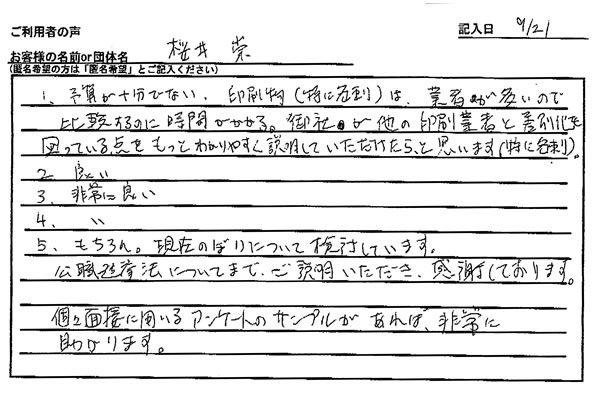 ご利用者の声
記入日 9/21
お客様の名前or団体名 桜井 崇
(匿名希望の方は「匿名希望」とご記入ください)
1、予算が十分でない、印刷物(特に名刺)は、業者が多いので
比較するのに時間がかかる。御社が他の印刷業者と差別化を
図っている点をもっとわかりやすく説明していただけたら、と思います(特に名刺)。
2 良い
3、非常に良い
4、 〃
5、もちろん。現在のぼりについて検討しています。
公職選挙法についてまで、ご説明いただき、感謝しております。
個々面接に用いるアンケートのサンプルがあれば、非常に
助かります。